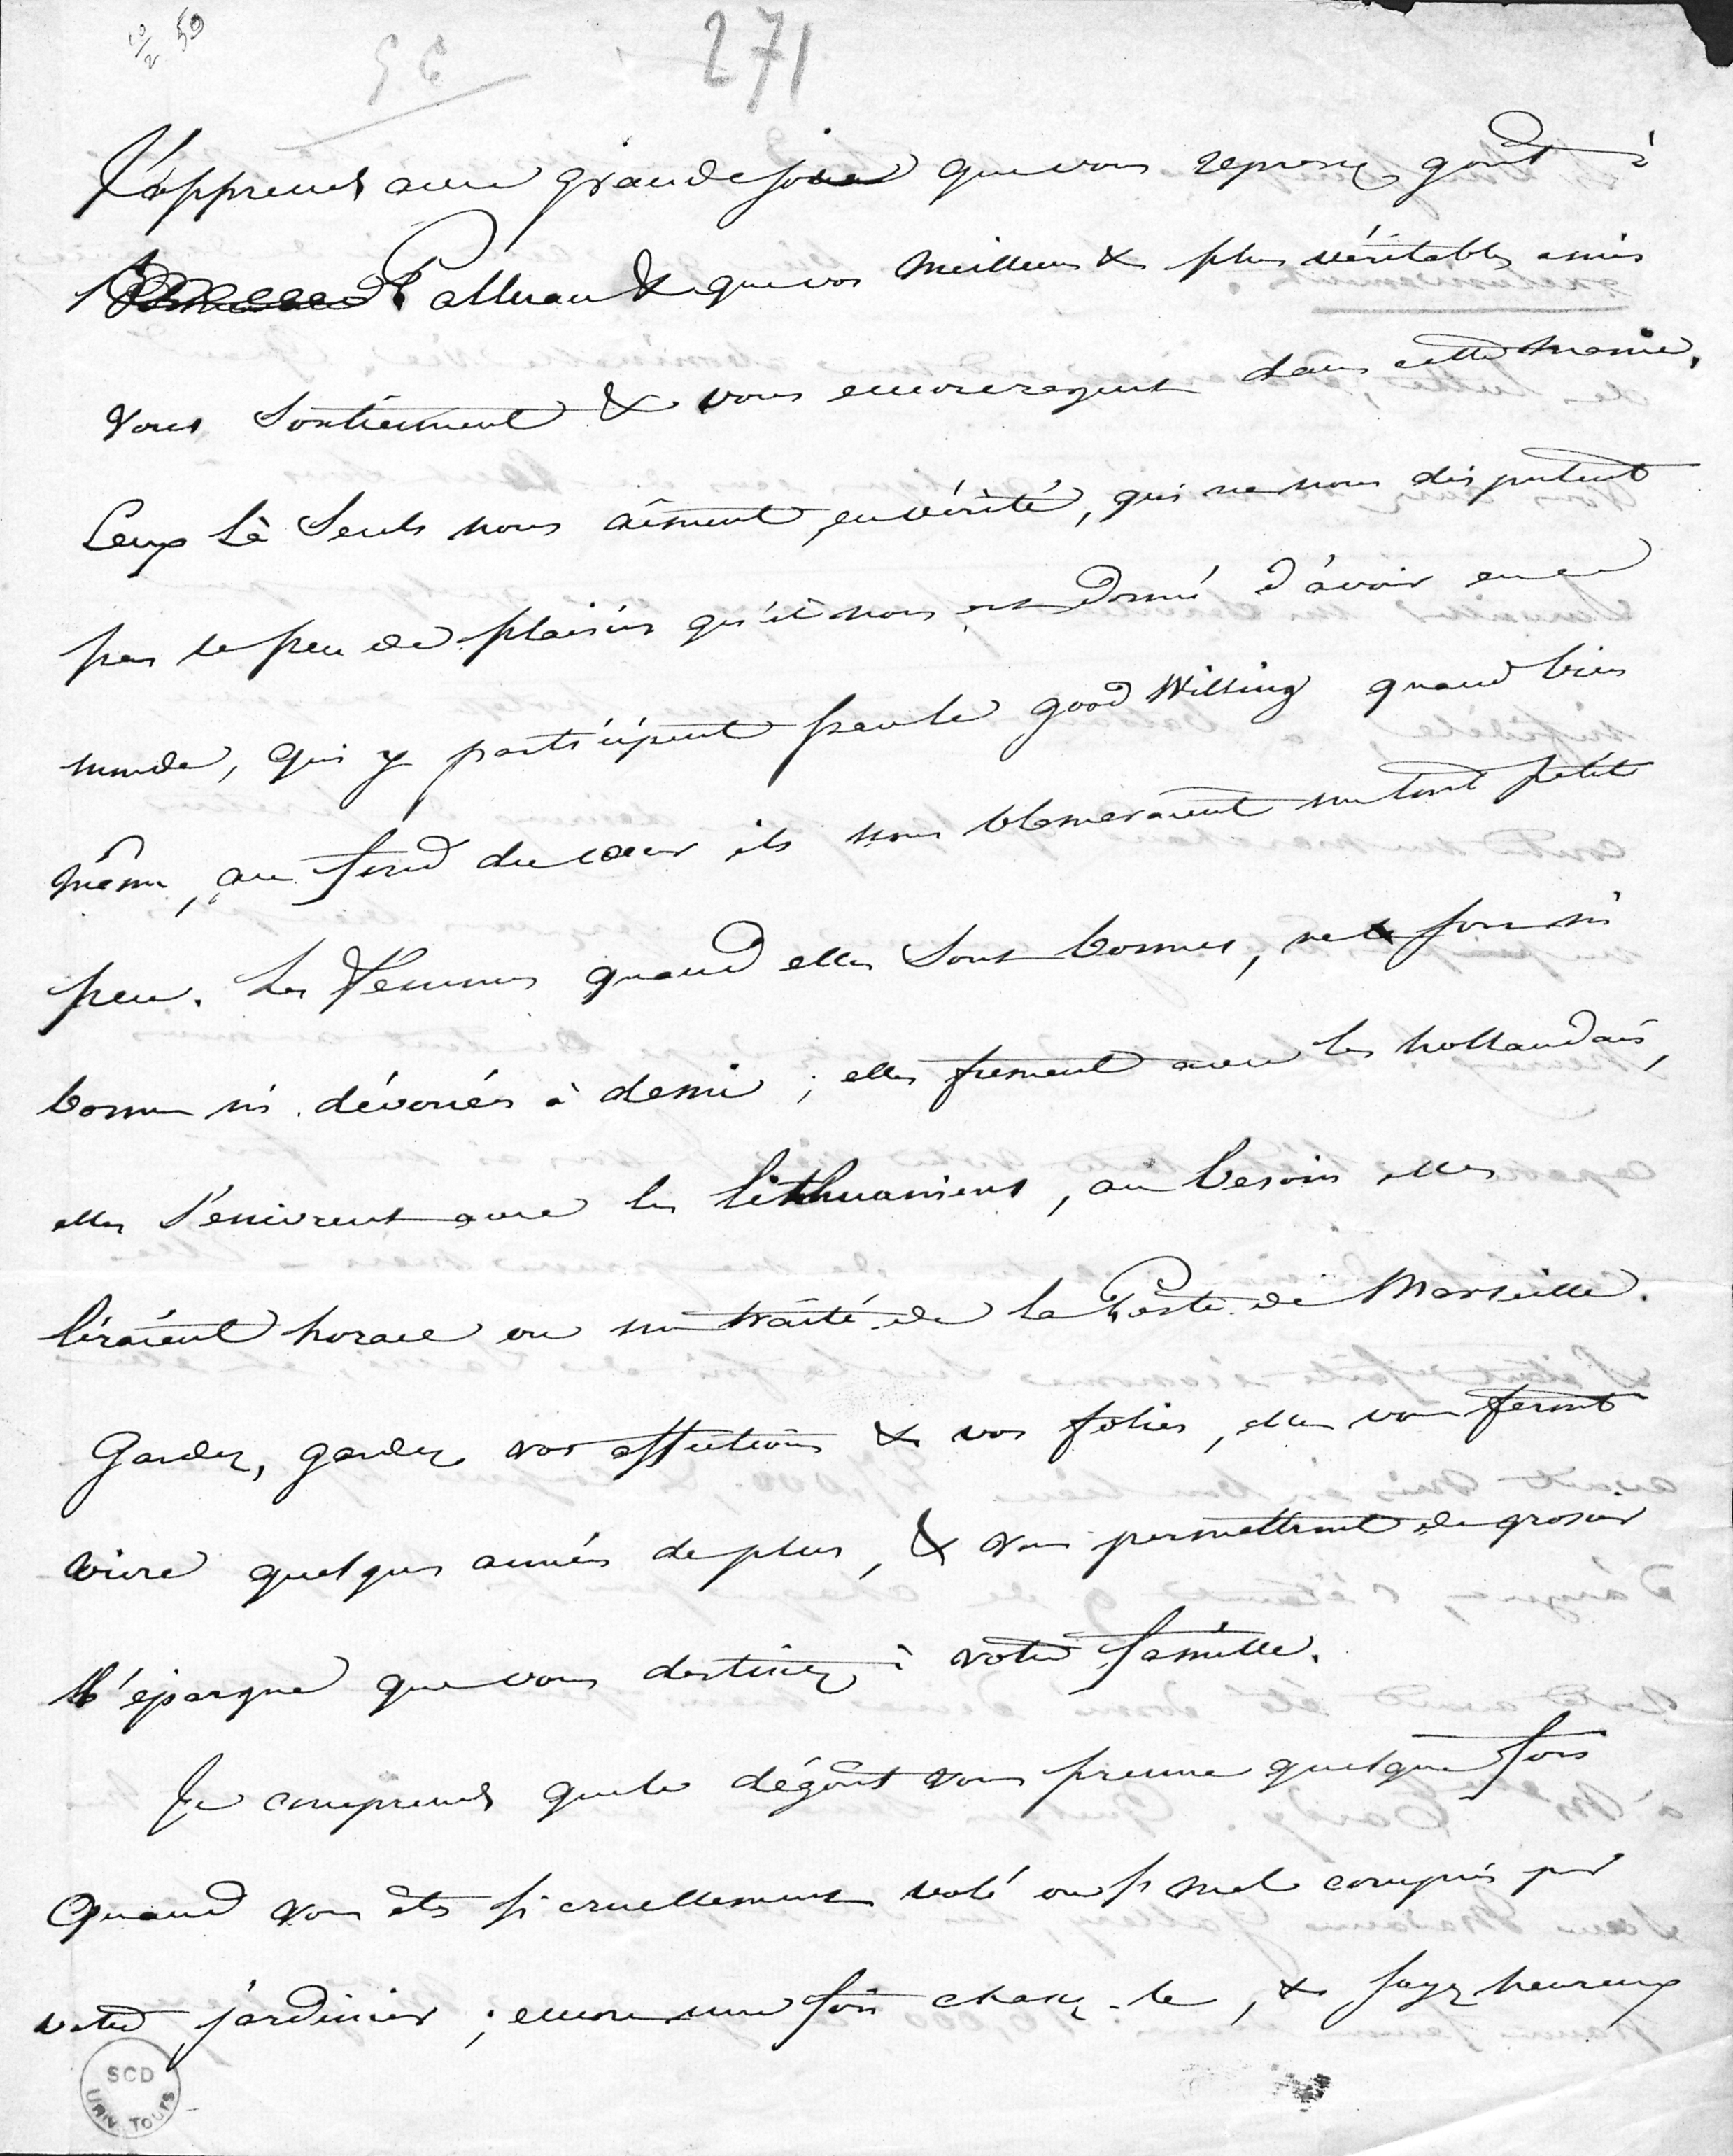 10/2 50
271
J'apprends avec grande joie que vous reprenez goût à
Palluau & que vos meilleurs & plus véritables amis
vous soutiennent & vous encouragent dans cette manie.
Ceux là seuls nous aiment, en vérité, qui ne nous disputent
pas le peu de plaisirs qu'il nous est donné d'avoir en ce
monde, qui y participent par le good Willing quand bien
même, au fond du cœur ils nous blameraient un tout petit
peu. Les femmes quand elles sont bonnes, ne le sont ni
bonnes ni dévouées à demi ; elles fument avec les hollandais,
elles s'enivrent avec les lithuaniens, au besoin elles
liraient horace ou un traité de la Peste de Marseille.
Gardez, gardez vos affections & vos folies, elles vous feront
vivre quelques années de plus, & vous permettront de grossir
l'épargne que vous destinez à votre famille.
Je comprends que le dégoût vous prenne quelque fois
Quand vous êtes si cruellement volé ou si mal compris par
votre jardinier ; encore une fois chassez-le, & soyez heureux
SCD
UNIV TOURS